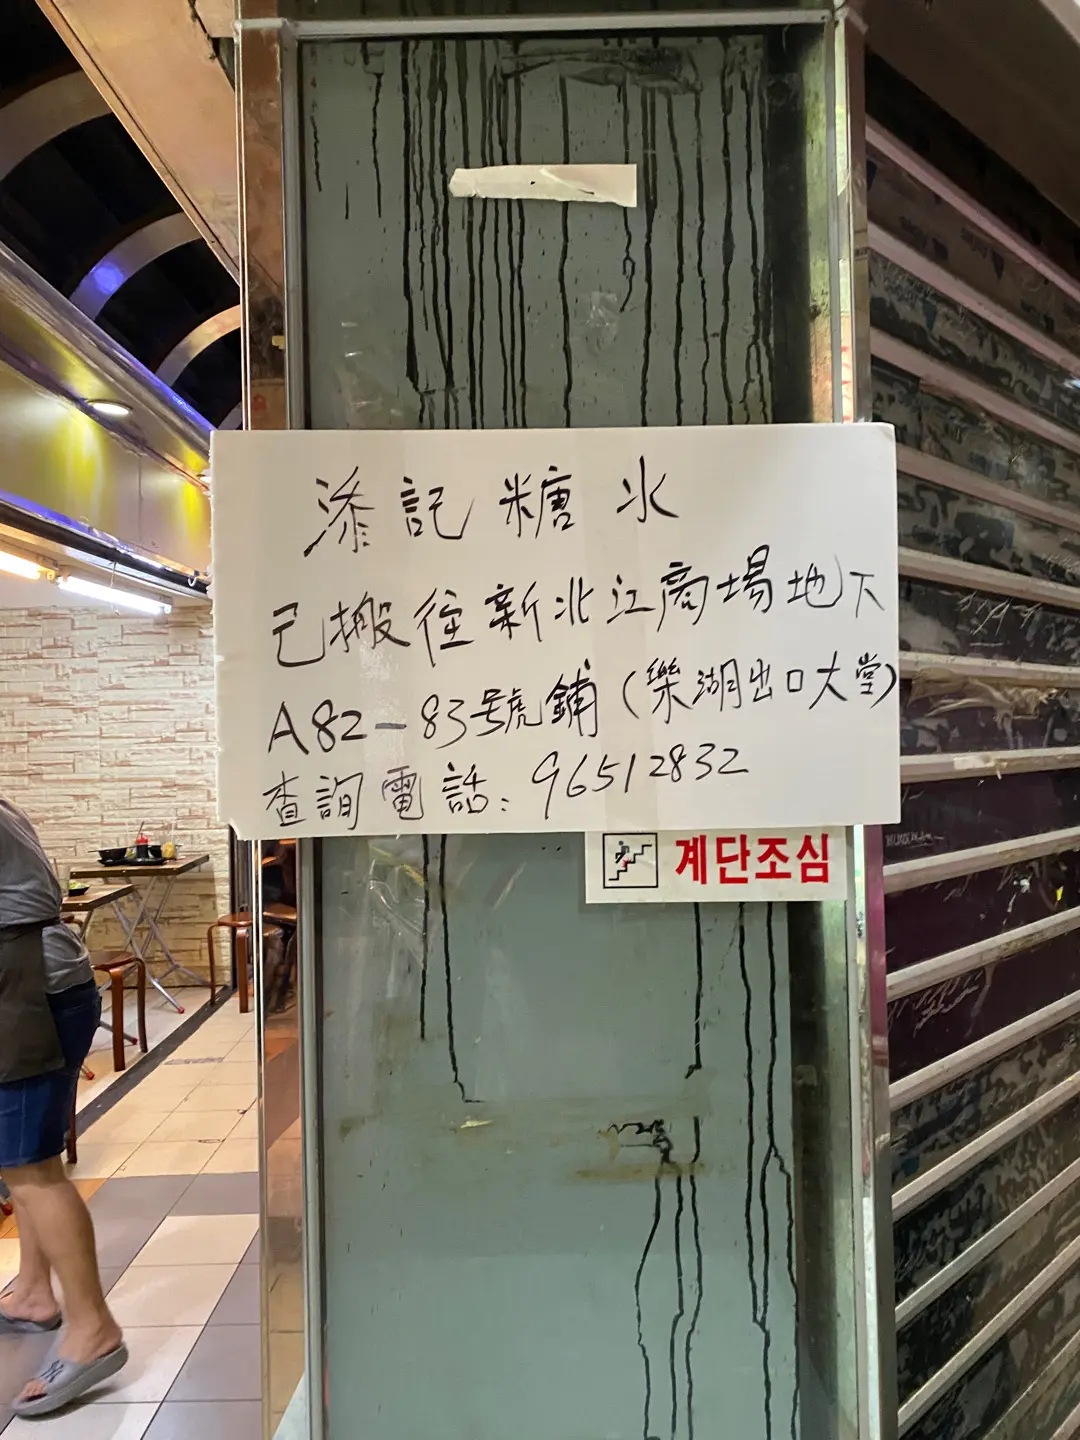 添記糖水
已搬往新北江商場地下
A82-83号號鋪(樂湖出口大堂)
查詢電話: 96512832
계단조심